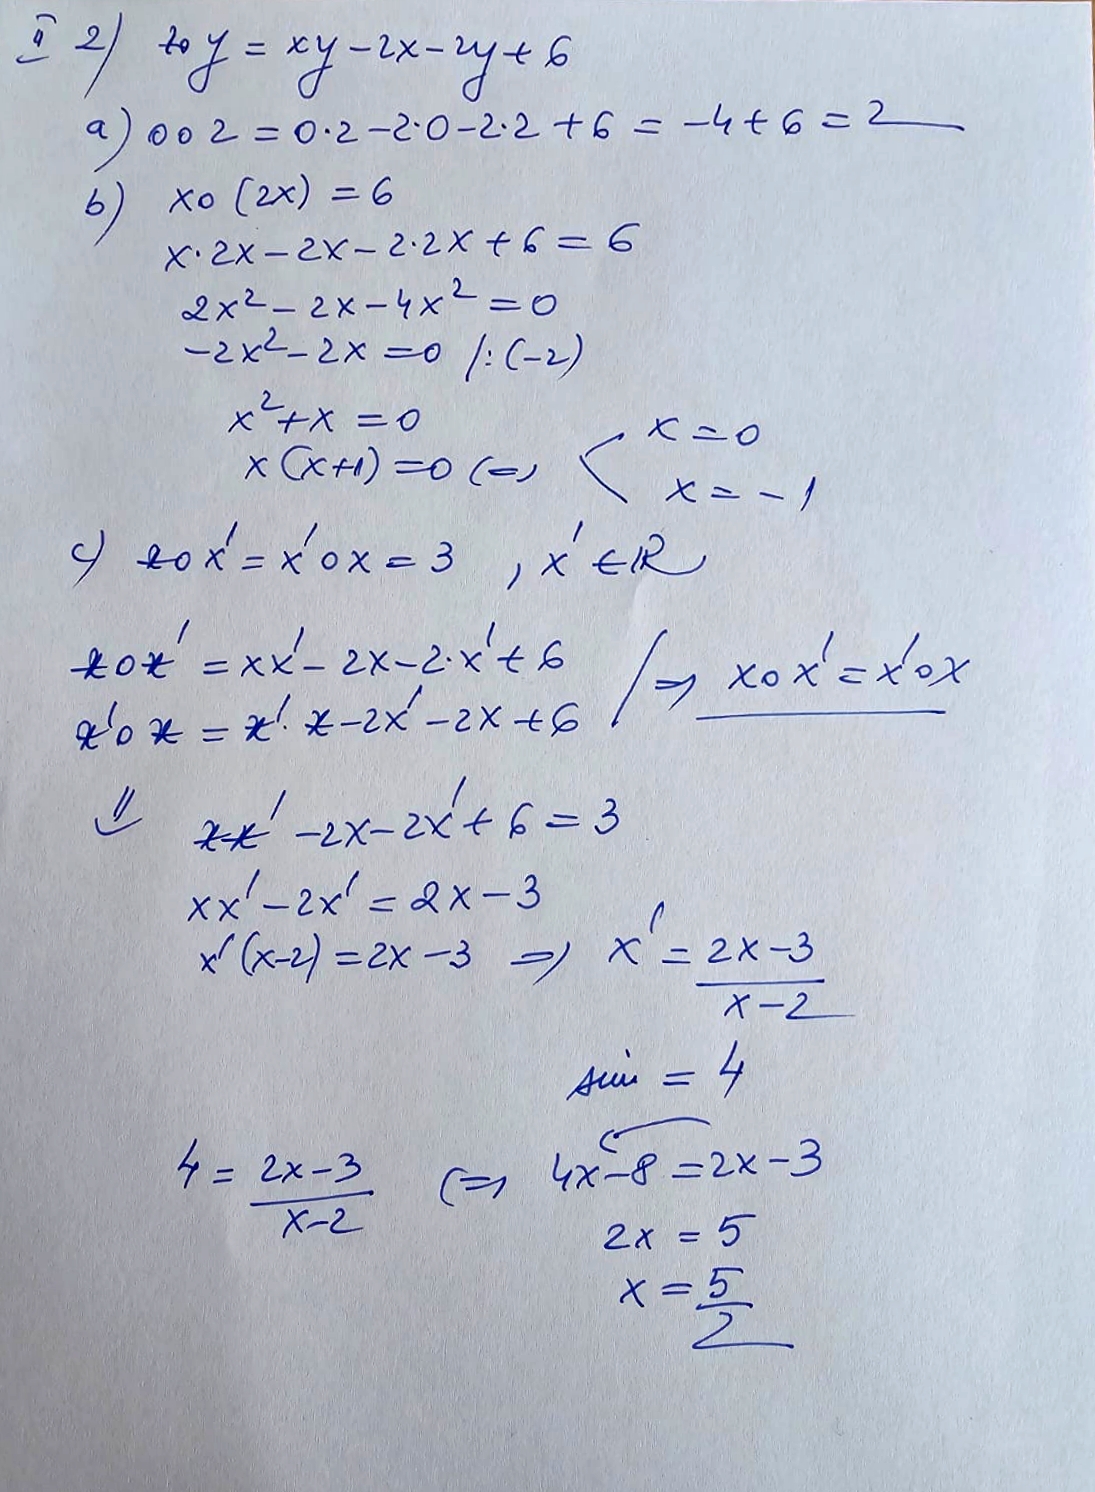 II 2) xoy = xy-2x-2y+6
a) 0o2 = 0·2-2·0-2·2+6 = -4+6 = 2
b) xo(2x) = 6
x·2x-2x-2·2x+6 = 6
2x²-2x-4x² = 0
-2x²-2x = 0 /:(-2)
x²+x = 0
x(x+1) = 0 (=) x = 0
x = -1
c) xox' = x'ox = 3 , x' ∈ R
xox' = xx'-2x-2·x'+6
x'ox = x'·x-2x'-2x+6 /=> xox' = x'ox
⇓ xx'-2x-2x'+6 = 3
xx'-2x' = 2x-3
x'(x-2) = 2x-3 => x' = 2x-3 / x-2
sim = 4
4 = 2x-3 / x-2 (=> 4x-8 = 2x-3
2x = 5
x = 5/2